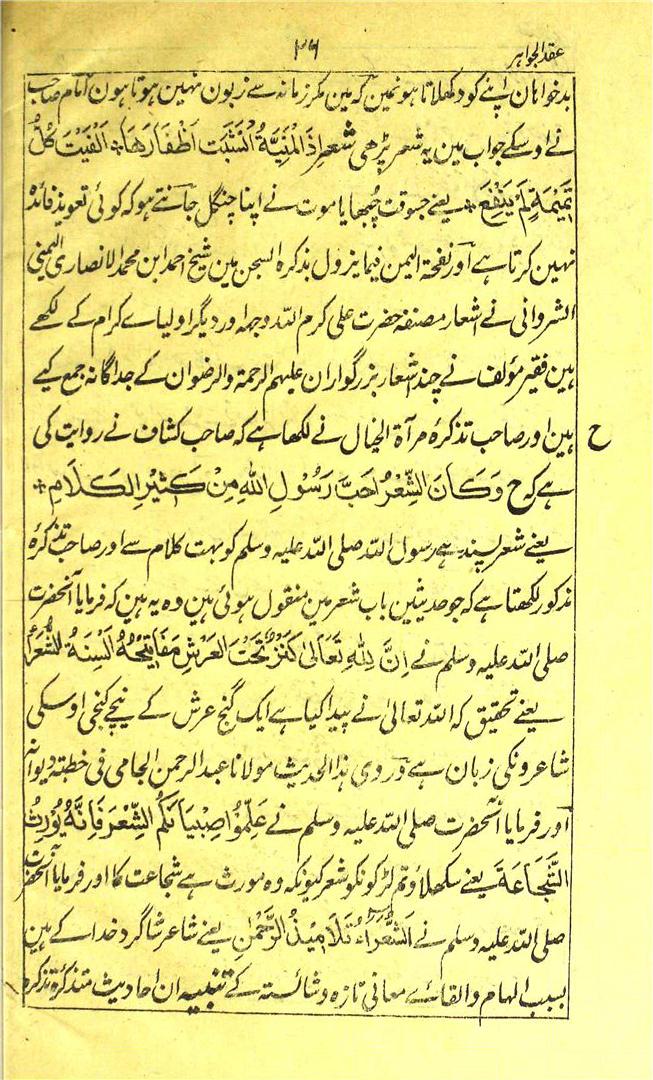 عقد الجواہر
۳۶
بدخواہان اپنے کو دکھلاتا ہونمین کہ مین مکر زمانہ سے زبون نہین ہوتا ہون امام صاحب
نے اوسکے جواب مین یہ شعر پڑھی شعر اِذَ الْمَنِیَّةُ اَنْشَبَتْ اَظْفَارَهَا ٭ اَلْفَیْتَ کُلَّ
تَمِیْمَةٍ لَمْ یَنْفَعِ ٭ یعنے جسوقت چبھایا موت نے اپنا چنگل جانتے ہو کہ کوئی تعویذ فائدہ
نہین کرتا ہے اور نفحة الیمن فیما یزول بذکرہ السجن مین شیخ احمد ابن محمد الانصاری الیمنی
الشروانی نے اشعار مصنفہ حضرت علی کرم اللہ وجہہ اور دیگر اولیاے کرام کے لکھے
ہین فقیر مؤلف نے چند اشعار بزرگواران علیہم الرحمة والرضوان کے جداگانہ جمع کیے
ہین اور صاحب تذکرہ مرآة الخیال نے لکھا ہے کہ صاحب کشاف نے روایت کی
ح
ہے کہ ح وَکَانَ الشِّعْرُ اَحَبَّ رَسُوْلِ اللهِ مِنْ کَثِیْرِ الْکَلَامِ ٭
یعنے شعر پسند ہے رسول اللہ صلی اللہ علیہ وسلم کو بہت کلام سے اور صاحب تذکرہ
مذکور لکھتا ہے کہ جو حدیثین باب شعر مین منقول ہوئی ہین وہ یہ ہین کہ فرمایا آنحضرت
صلی اللہ علیہ وسلم نے اِنَّ لِلّٰهِ تَعَالٰی کَنْزٌ تَحْتَ الْعَرْشِ مَفَاتِیْحُهُ اَلْسِنَةُ الشُّعَرَاءِ
یعنے تحقیق کہ اللہ تعالیٰ نے پیدا کیا ہے ایک گنج عرش کے نیچے کنجی اوسکی
شاعرونکی زبان ہے وروی ہذا الحدیث مولانا عبد الرحمن الجامی فی خطبة دیوانہ
اور فرمایا آنحضرت صلی اللہ علیہ وسلم نے عَلِّمُوْا صِبْیَانَکُمُ الشِّعْرَ فَاِنَّهُ یُوْرِثُ
الشُّجَاعَةَ یعنے سکھلاؤ تم لڑکونکو شعر کیونکہ وہ مورث ہے شجاعت کا اور فرمایا آنحضرت
صلی اللہ علیہ وسلم نے اَلشُّعَرَاءُ تَلَامِیْذُ الرَّحْمٰنِ یعنے شاعر شاگرد خدا کے ہین
بسبب الہام والقاے معانی تازہ وشائستہ کے تنبیہ ان احادیث متذکرہ تذکرہ